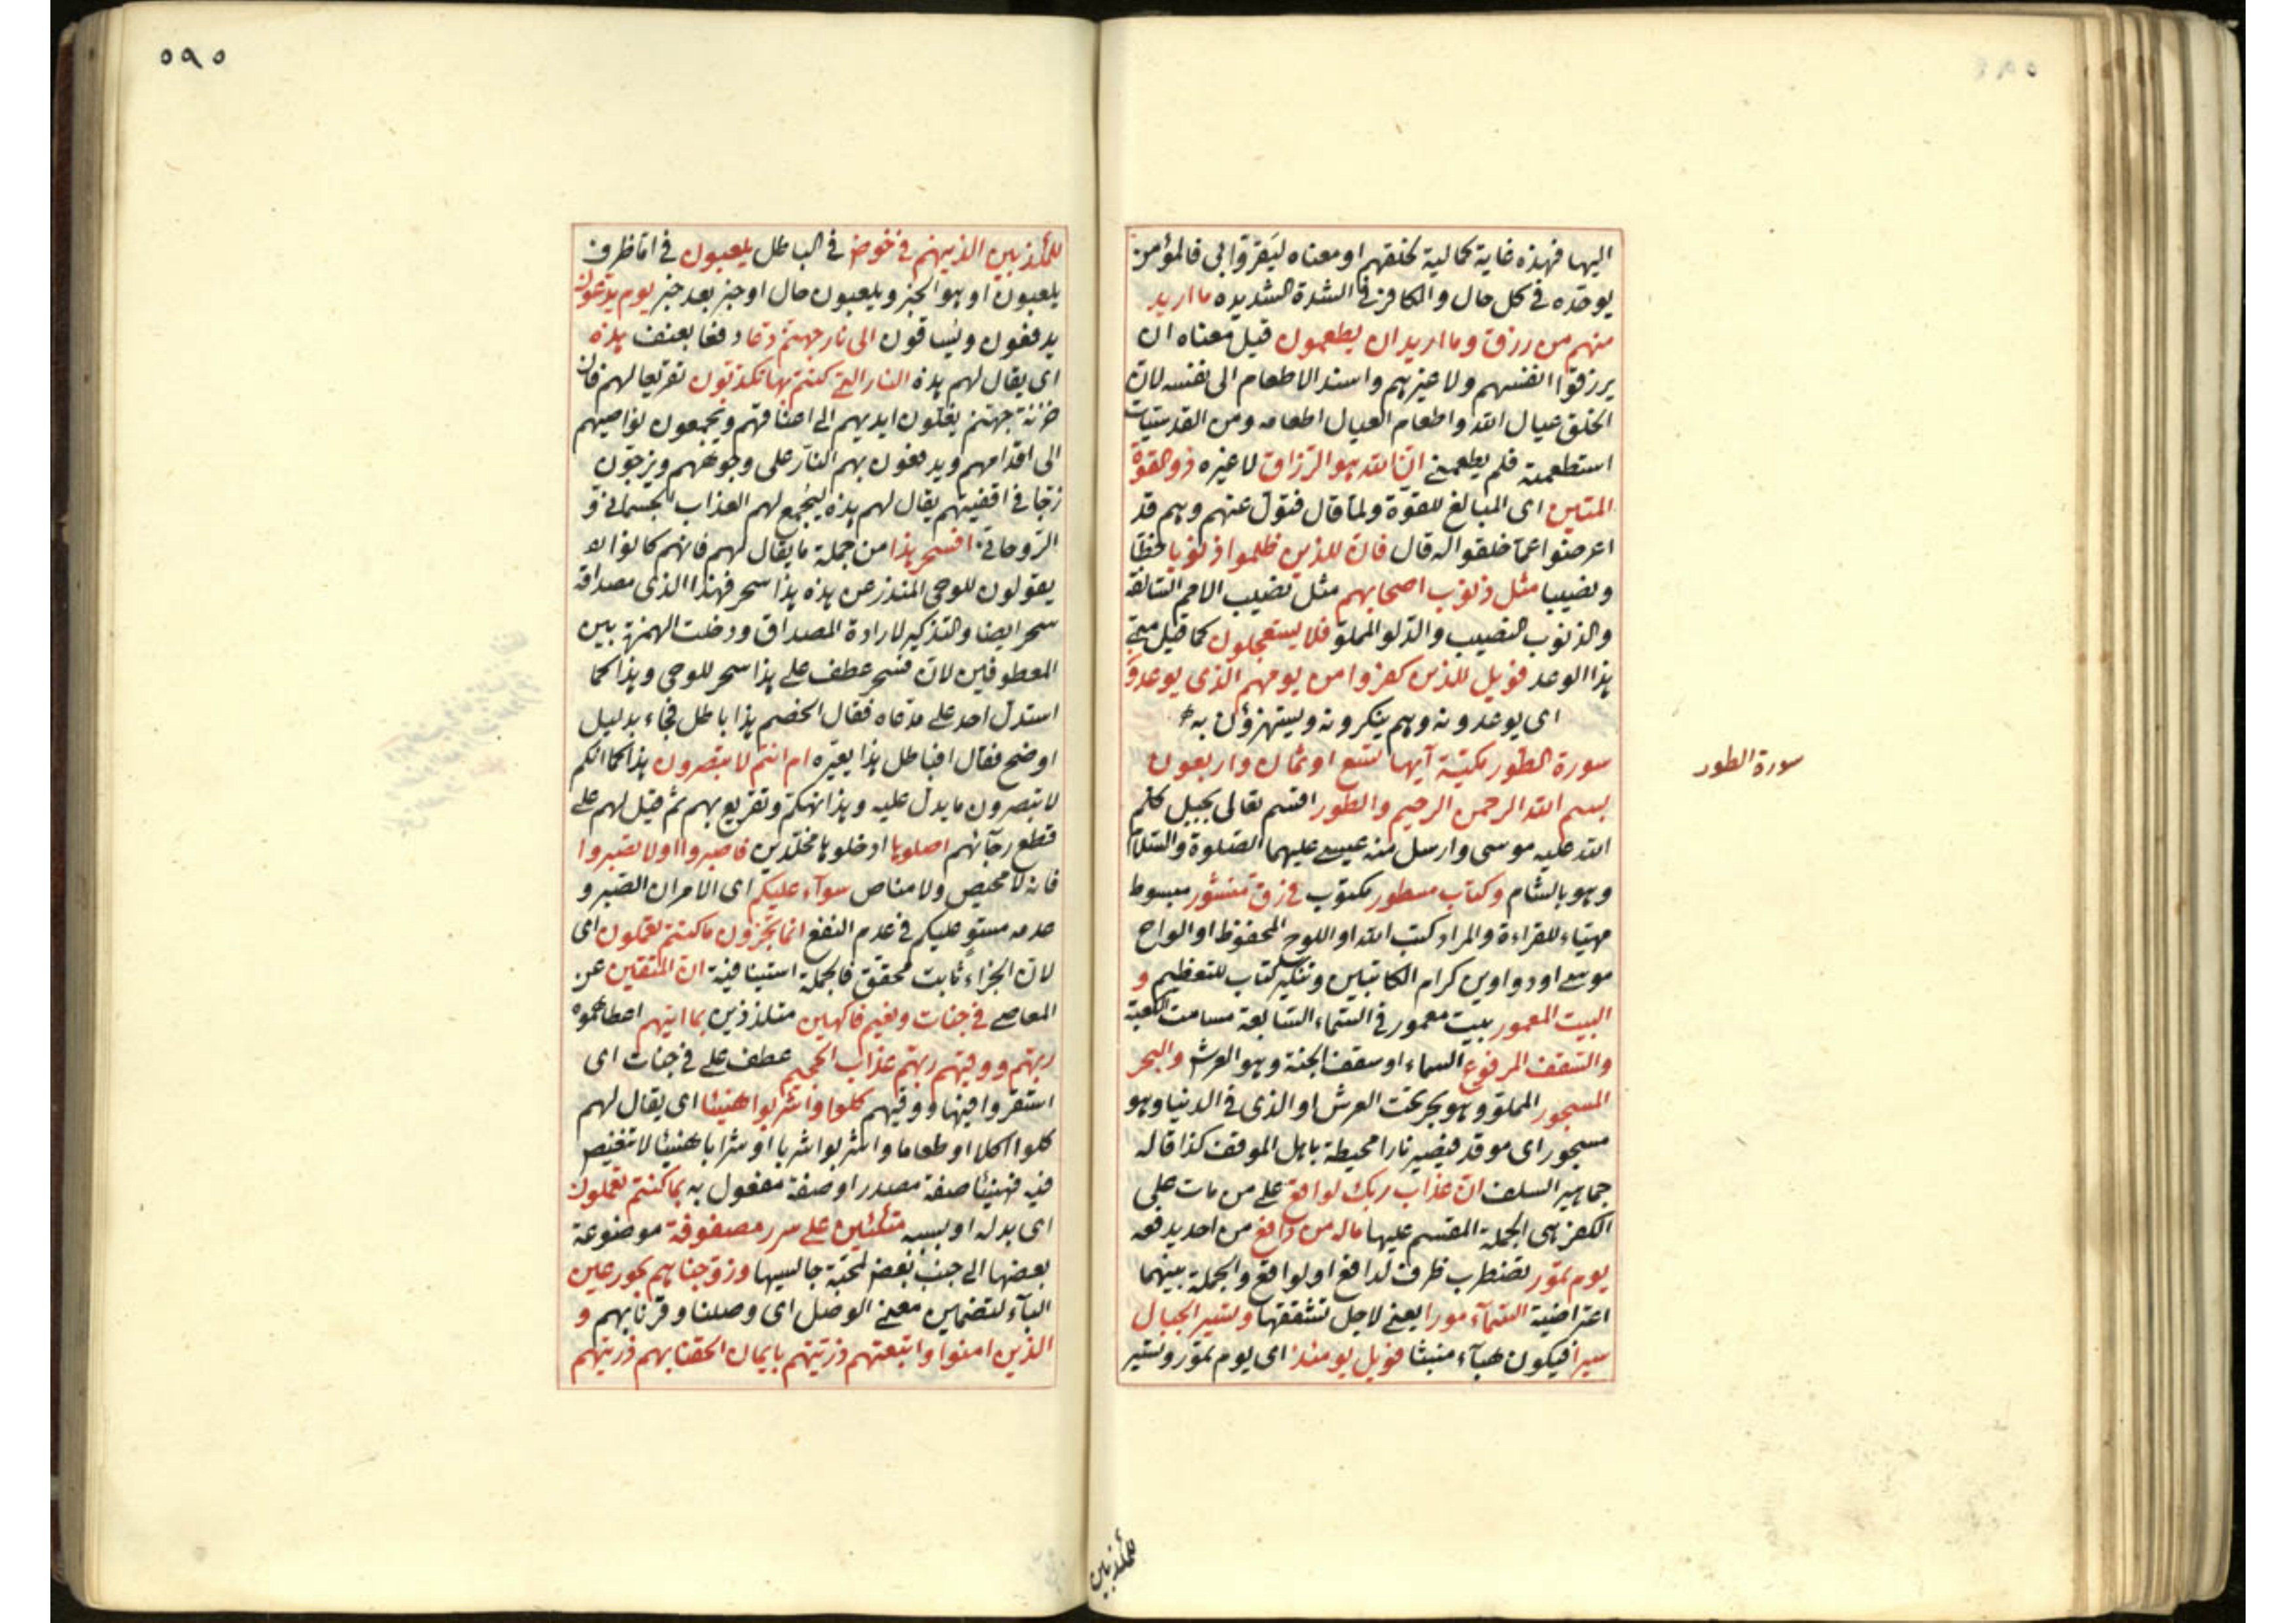 اليها فهذه غاية كمالية لخلقهم او معناه ليقروا بي فالمؤمن
يوحده في كل حال والكافر في الشدة الشديده ما اريد
منهم من رزق وما اريد ان يطعمون قيل معناه ان
يرزقوا انفسهم ولا غيرهم واسند الاطعام الى نفسه لان
الخلق عيال الله واطعام العيال اطعامه ومن القدسيات
استطعمته فلم يطعمني ان الله هو الرزاق لا غيره ذو القوة
المتين اي المبالغ للقوة ولما قال فتول عنهم وهم قد
اعرضوا عما خلقوا له قال فان للذين ظلموا ذنوبا حظا
ونصيبا مثل ذنوب اصحابهم مثل نصيب الامم السالفة
والذنوب النصيب والدلو المملو فلا يستعجلون كما قيل متى
هذا الوعد فويل للذين كفروا من يومهم الذي يوعدون
اي يوعدونه وهم ينكرونه ويستهزؤن به
سورة الطور مكية آيها تسع او ثمان واربعون
سورة الطور
بسم الله الرحمن الرحيم والطور اقسم تعالى بجبل كلم
الله عليه موسى وارسل منه عيسى عليهما الصلوة والسلام
وهو بالشام وكتاب مسطور مكتوب في رق منشور مبسوط
مهياء للقراءة والمراد كتب الله او اللوح المحفوظ او الواح
موسى او دواوين كرام الكاتبين وتنكير كتاب للتعظيم و
البيت المعمور بيت معمور في السماء السابعة مسامت الكعبة
والسقف المرفوع السماء او سقف الجنة وهو العرش والبحر
المسجور المملو وهو بحر تحت العرش او الذي في الدنيا وهو
مسجور اي موقد فيصير نارا محيطة باهل الموقف كذا قاله
جماهير السلف ان عذاب ربك لواقع على من مات على
الكفر هي الجملة المقسم عليها ماله من دافع من احد يدفعه
يوم تمور تضطرب ظرف لدافع او لواقع والجملة بينهما
اعتراضية السمآء مورا يعني لاجل تشققها وتسير الجبال
سيرا فيكون هبآء منبثا فويل يومئذ اي يوم تمور وتسير
للمكذبين
٥٩٥
للمكذبين الذين هم في خوض في الباطل يلعبون في اما ظرف
يلعبون او هو الخبر ويلعبون حال او خبر بعد خبر يوم يدعون
يدفعون ويساقون الى نار جهنم دعا دفعا بعنف هذه
اي يقال لهم هذه النار التي كنتم بها تكذبون تقريعا لهم فان
خزنة جهنم يغلون ايديهم الى اعناقهم ويجمعون نواصيهم
الى اقدامهم ويدفعون بهم النار على وجوههم ويزجون
زجا في اقفيتهم يقال لهم هذه ليجمع لهم العذاب الجسماني و
الروحاني افسحر هذا من جملة ما يقال لهم فانهم كانوا
يقولون للوحي المنذر عن هذه هذا سحر فهذا الذي مصداقه
سحر ايضا والتذكير لارادة المصداق ودخلت الهمزة بين
المعطوفين لان فسحر عطف على هذا سحر للوحي وهذا كما
استدل احد على مدعاه فقال الخصم هذا باطل فجاء بدليل
اوضح فقال افباطل هذا يعيره ام انتم لا تبصرون هذا كما انكم
لا تبصرون ما يدل عليه وهذا تهكم وتقريع بهم ثم قيل لهم على
قطع رجآئهم اصلوها ادخلوها مخلدين فاصبروا او لا تصبروا
فانه لا محيص ولا مناص سوآء عليكم اي الامران الصبر و
عدمه مستو عليكم في عدم النفع انما تجزون ما كنتم تعملون اي
لان الجزاء ثابت محقق فالجملة استينافية ان المتقين عن
المعاصي في جنات ونعيم فاكهين متلذذين بما اتيهم اعطاهموه
ربهم ووقيهم ربهم عذاب الجحيم عطف على في جنات اي
استقروا فيها ووقيهم كلوا واشربوا هنيئا اي يقال لهم
كلوا اكلا او طعاما واشربوا شربا او شرابا هنيئا لا تنغيص
فيه فهنيئا صفة مصدر او صفة مفعول به بما كنتم تعملون
اي بدله او بسببه متكئين على سرر مصفوفة موضوعة
بعضها الى جنب بعض لمحبة جالسيها وزوجناهم بحور عين
البآء لتضمين معنى الوصل اي وصلنا وقرنا بهم و
الذين امنوا واتبعتهم ذريتهم بايمان الحقنا بهم ذريتهم